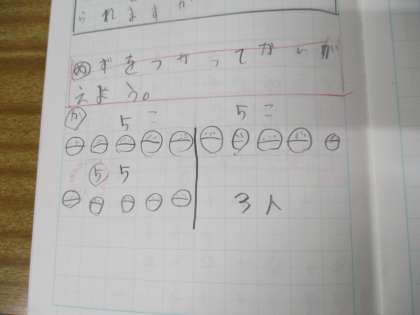 られますか
めずをつかってかんが
えよう。
か 5こ 5こ
5 5
3人